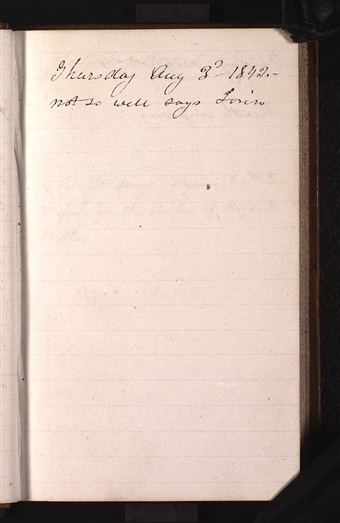 Thursday Aug 3d 1842.-
not so well says